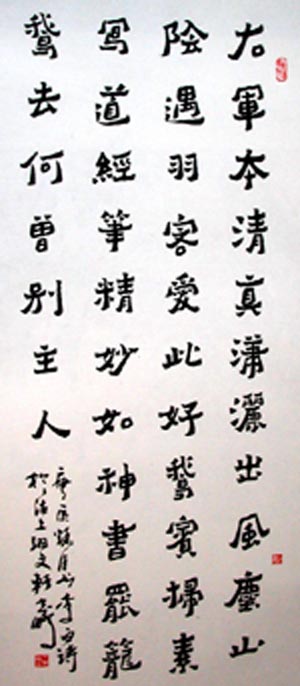 右軍本清真瀟灑出風塵山
陰遇羽客愛此好鵞賓掃素
寫道經筆精妙如神書罷籠
鵞去何曾別主人
李白詩
於滬上文軒